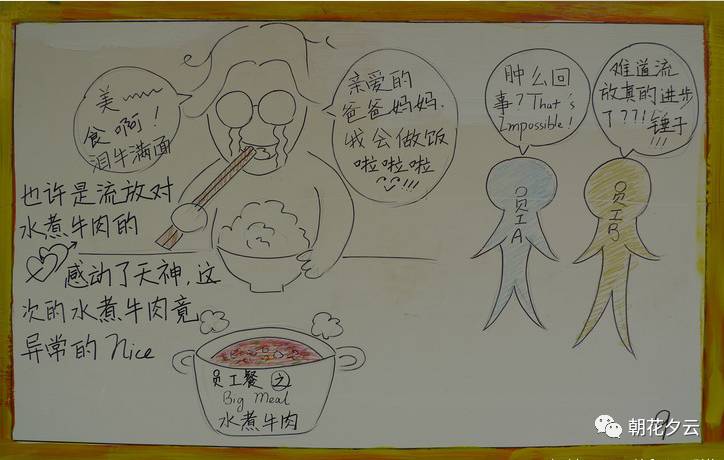 美~~~
食啊！
泪牛满面
亲爱的
爸爸妈妈.
我会做饭
啦啦啦
!!!
肿么回
事？That's
Impossible！
难道流
放真的进步
了??!!
锤子
!!!
员工A
员工B
也许是流放对
水煮牛肉的
感动了天神，这
次的水煮牛肉竟
异常的Nice
员工餐之
Big Meal
水煮牛肉
9
朝花夕云